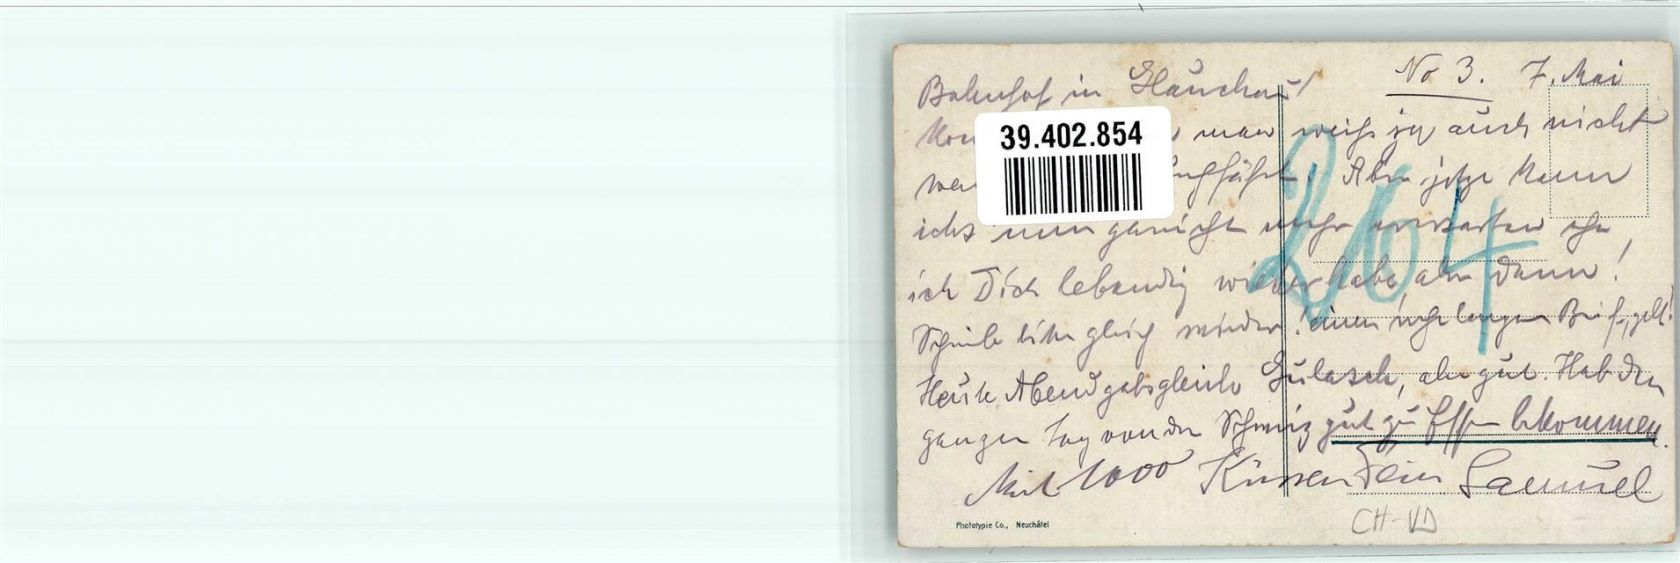 No 3. 7. Mai
Bahnhof in
39.402.854
man weiß ja auch nicht
Aber jetzt kann
ichs nun garnicht mehr erwarten ehe
ich Dich lebendig wiederhabe aber dann!
Schreibe bitte gleich wieder! einen recht langen Brief, gell!
Heute Abend gabs gleich Gulasch, aber gut. Hab den
ganzen Tag von der Schweiz gut zu Essen bekommen.
Mit 1000 Küssen Dein Samuel
204
Phototypie Co., Neuchâtel
CH-VD